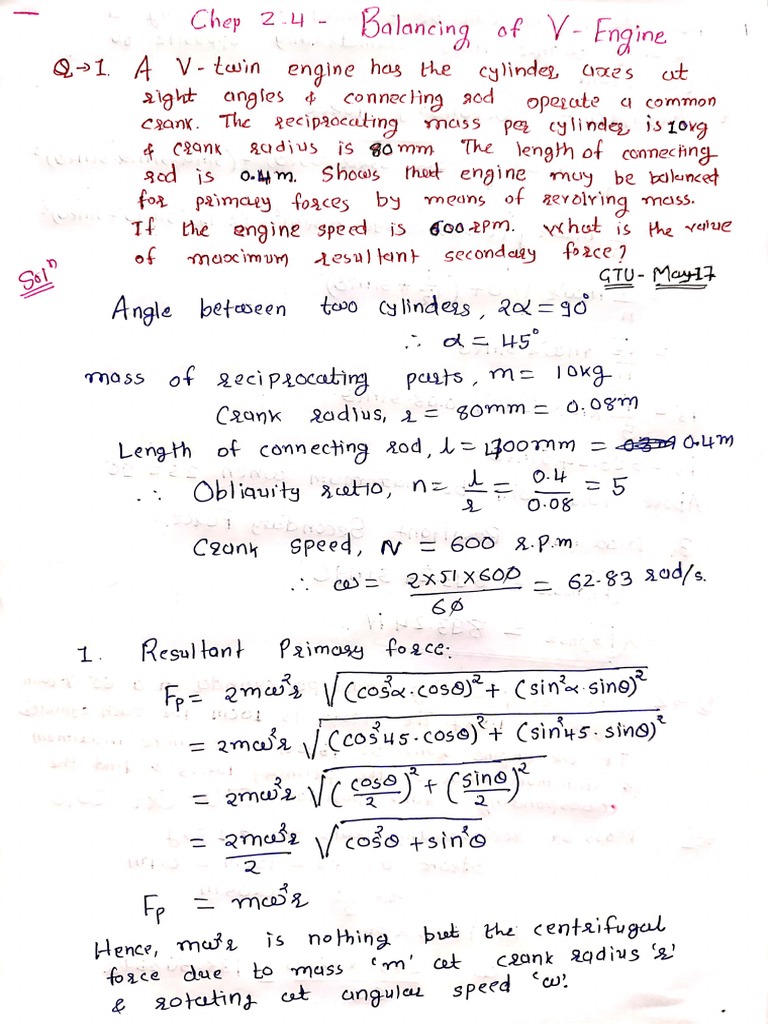 Chep 2.4 - Balancing of V-Engine
Q→1. A V-twin engine has the cylinder axes at
right angles & connecting rod operate a common
crank. The reciprocating mass per cylinder is 10kg
& crank radius is 80mm The length of connecting
rod is 0.4m. Shows that engine may be balanced
for primary forces by means of revolving mass.
If the engine speed is 600 rpm. What is the value
of maximum resultant secondary force?
GTU - May-17
Solⁿ
Angle between two cylinders, 2α = 90°
∴ α = 45°
mass of reciprocating parts, m = 10kg
Crank radius, r = 80mm = 0.08m
Length of connecting rod, l = 300mm = 0.4m
∴ Obliquity ratio, n = l/r = 0.4/0.08 = 5
Crank speed, N = 600 r.p.m
∴ ω = 2×π×600/60 = 62.83 rad/s.
1. Resultant Primary force:
Fp = 2mω²r √(cos²α·cosθ)² + (sin²α·sinθ)²
= 2mω²r √(cos²45·cosθ)² + (sin²45·sinθ)²
= 2mω²r √(cosθ/2)² + (sinθ/2)²
= 2mω²r/2 √cos²θ + sin²θ
Fp = mω²r
Hence, mω²r is nothing but the centrifugal
force due to mass 'm' at crank radius 'r'
& rotating at angular speed 'ω'.